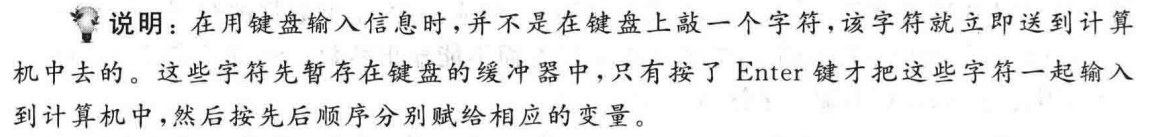 说明：在用键盘输入信息时,并不是在键盘上敲一个字符,该字符就立即送到计算
机中去的。这些字符先暂存在键盘的缓冲器中,只有按了 Enter 键才把这些字符一起输入
到计算机中,然后按先后顺序分别赋给相应的变量。